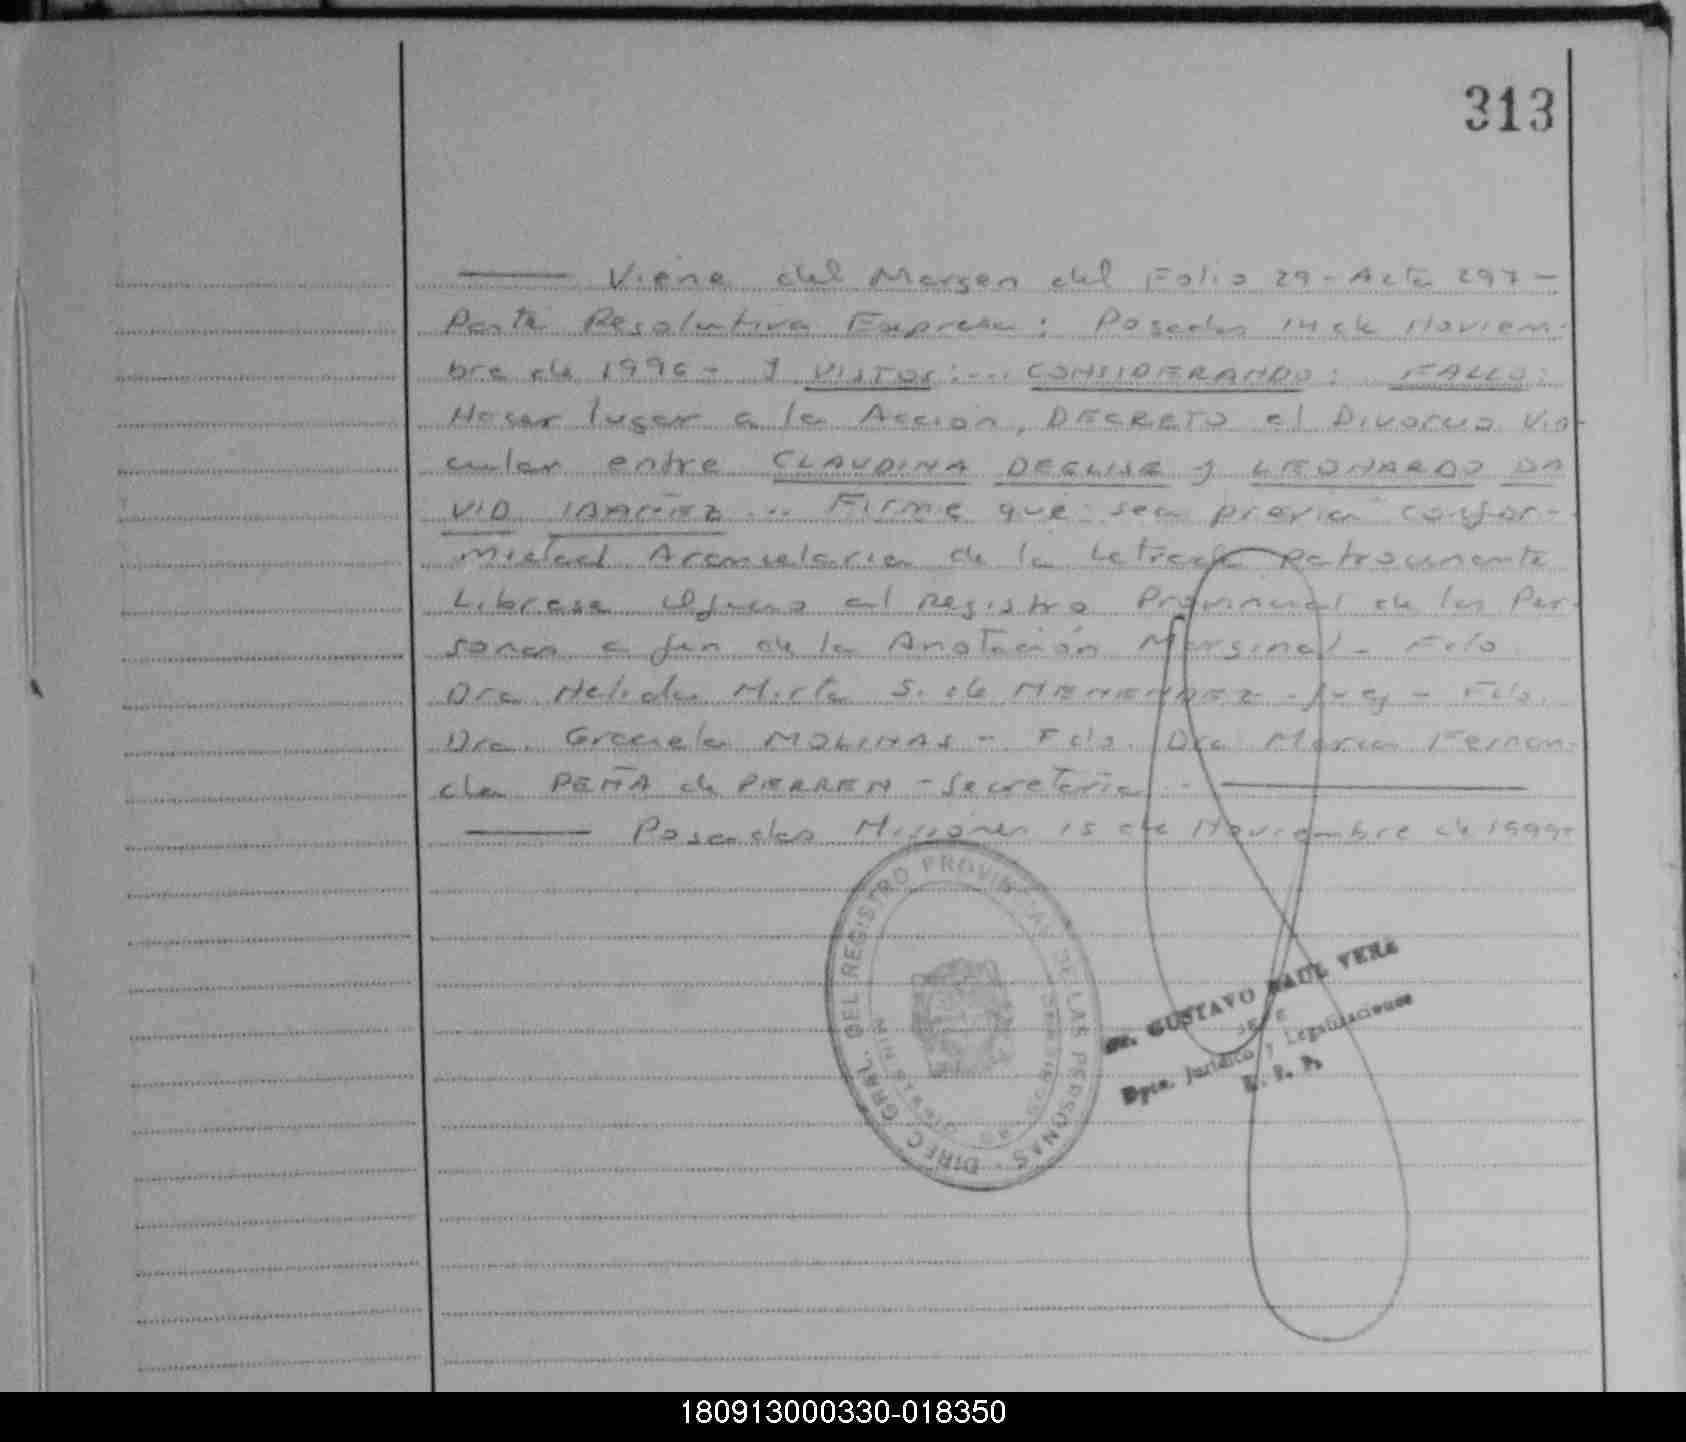 313
Viene del Margen del Folio 29 - Acta 297 -
Parte Resolutiva Expresa: Posadas 14 de Noviem-
bre de 1996 - Y VISTOS:... CONSIDERANDO: FALLO:
Hacer lugar a la Acción, DECRETO el Divorcio Vin-
cular entre CLAUDINA DEGLISE y LEONARDO DA
VID IBAÑEZ ... Firme que sea previa confor-
midad Arancelaria de la Letrada Patrocinante
Librese Oficio al Registro Provincial de las Per-
sonas a fin de la Anotación Marginal - Fdo.
Dra. Helida Mirta S. de MENENDEZ - Juez - Fdo.
Dra. Graciela MOLINAS - Fdo. Dra Maria Fernan-
da PEÑA de PIERREN - Secretaria -
Posadas Misiones 15 de Noviembre de 1999-
DIREC. GRAL. DEL REGISTRO PROVINCIAL DE LAS PERSONAS
Dr. GUSTAVO RAUL VERA
JEFE
Dpto. Jurídico y Legalizaciones
R. P. P.
180913000330-018350